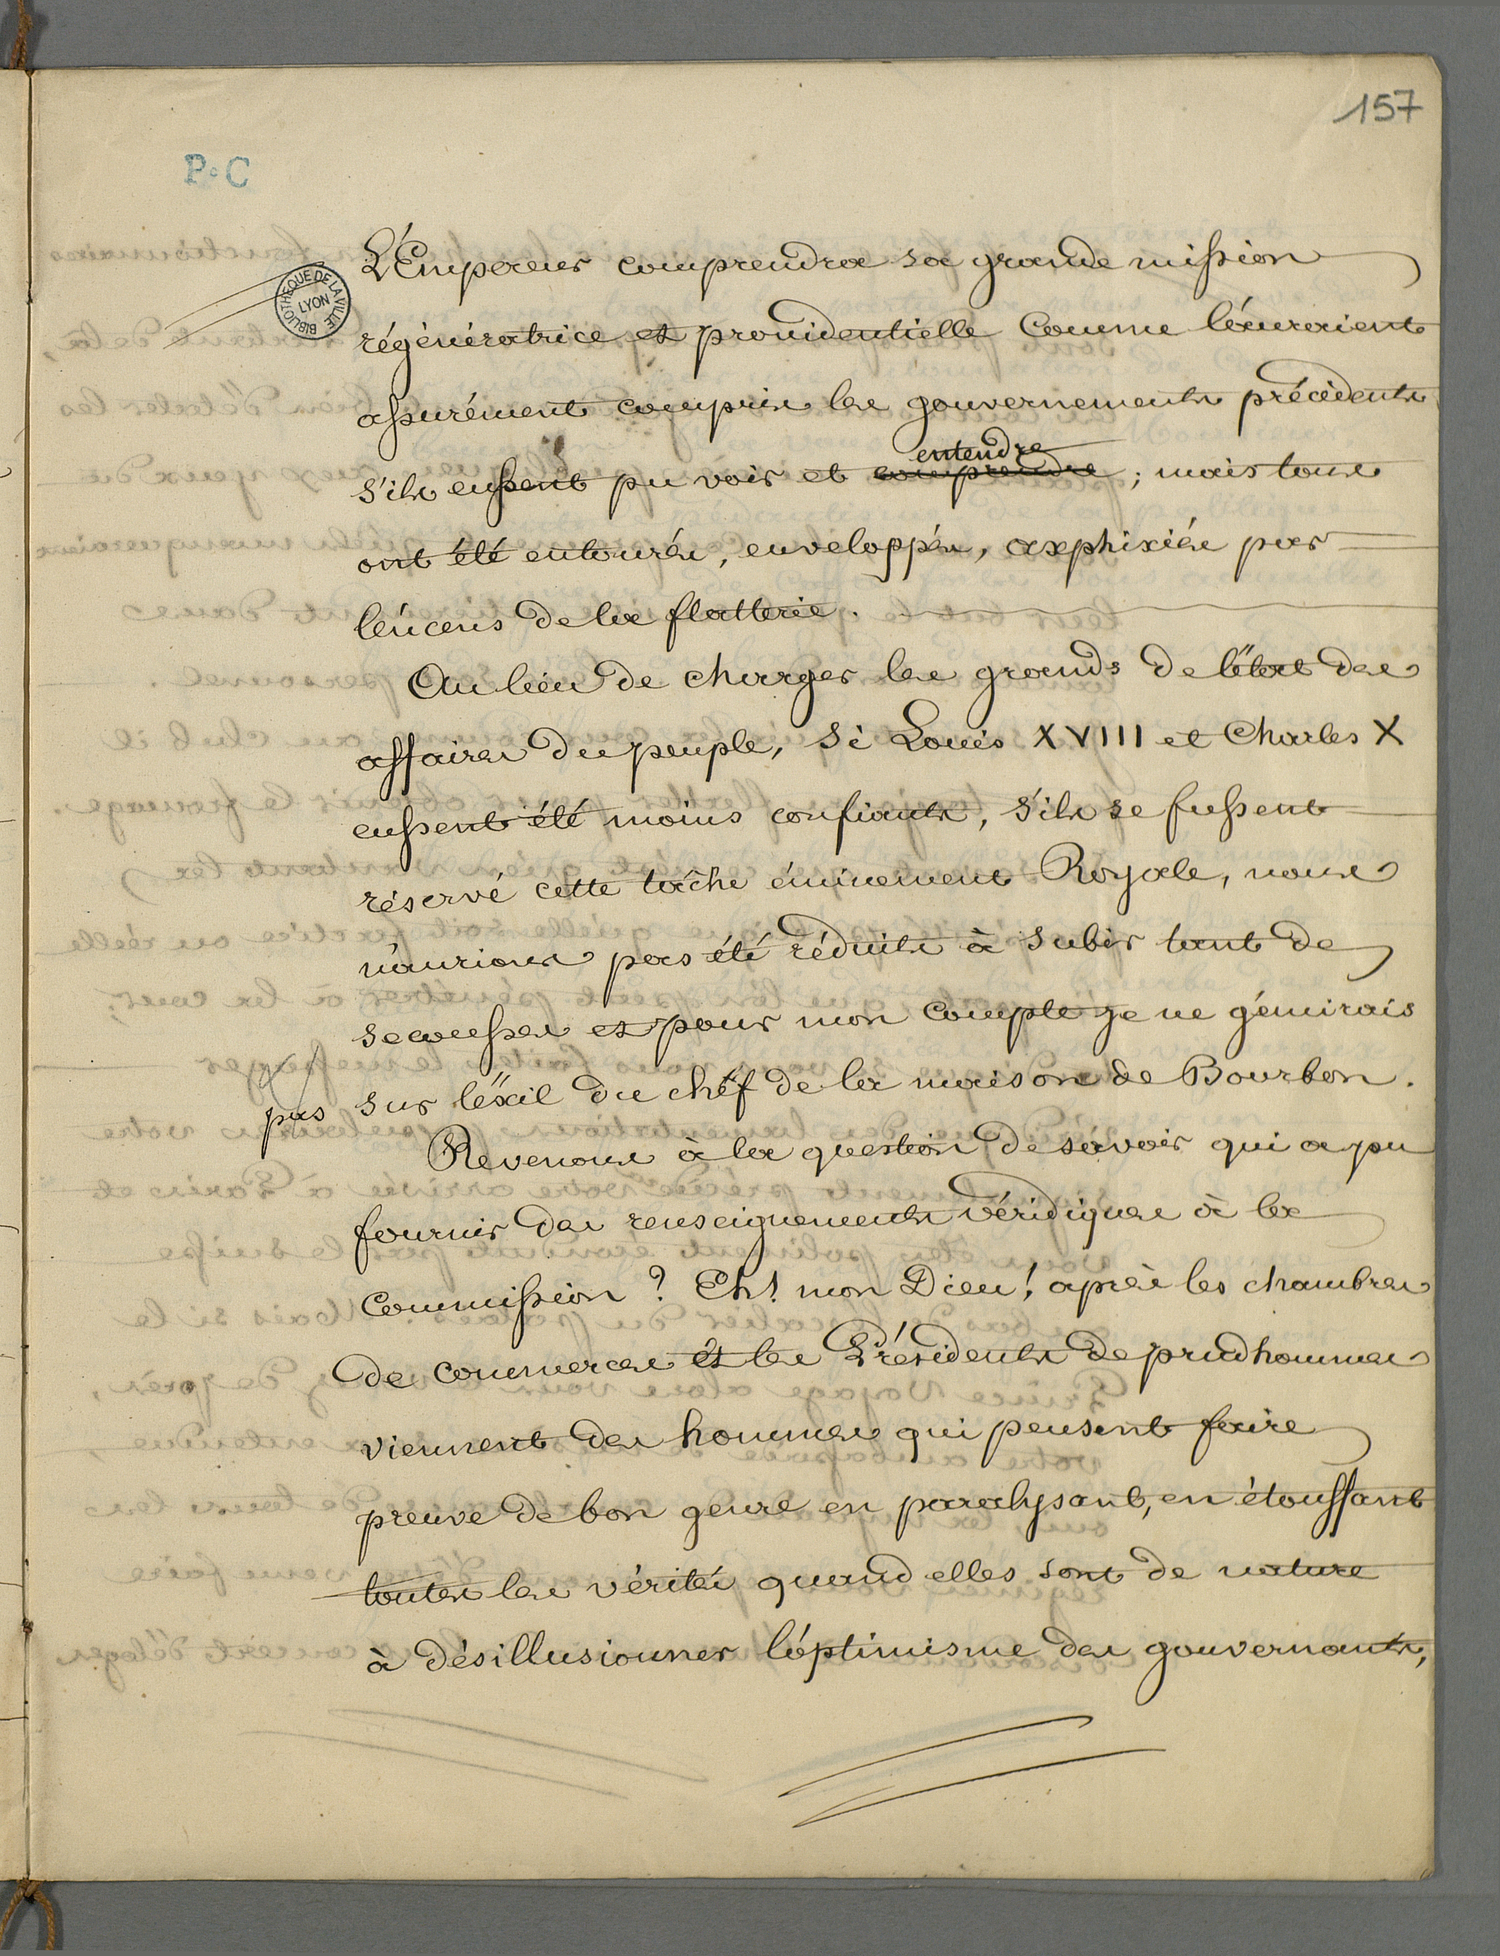 157
P.C
BIBLIOTHEQUE DE LA VILLE
LYON
L'Empereur comprendra sa grande mission
régénératrice et providentielle comme l'auraient
assurément compris les gouvernements précédents
s'ils eussent pu voir et comprendre entendre ; mais tous
ont été entourés, enveloppés, axphixiés par
l'encens de la flatterie.
Au lieu de charger les grands de l'état des
affaires du peuple, si Louis XVIII et Charles X
eussent été moins confiants, s'ils se fussent
réservé cette tâche éminement Royale, nous
n'aurions pas été réduits à subir tant de
secousses et pour mon compte je ne gémirais
pas sur l'éxil du chef de la maison de Bourbon.
Revenons à la question de savoir qui a pu
fournir des renseignements véridiques à la
Commission ? Eh ! mon Dieu ! après les chambres
de commerces et les Présidents de prudhommes
viennent des hommes qui pensent faire
preuve de bon genre en paralysant, en étouffant
toutes les vérités quand elles sont de nature
à désillusionner l'optimisme des gouvernants,